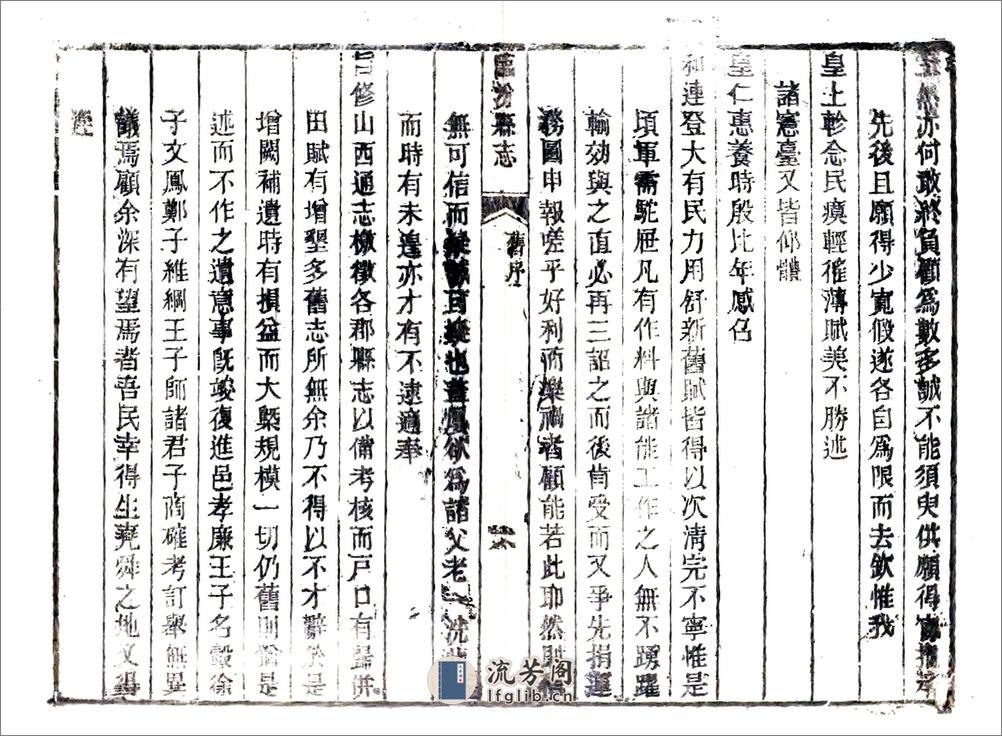 然亦何敢終負顧爲數多誠不能須臾供願得
先後且願得少寬假遂各自爲限而去欽惟我
皇上軫念民瘼輕徭薄賦美不勝述
諸憲臺又皆仰體
皇仁惠養時殷比年感召
和連登大有民力用舒新舊賦皆得以次淸完不寧惟是
頃軍需駝屜凡有作料與諸能工作之人無不踴躍
輸効與之直必再三詔之而後肯受而又爭先捐運
務圖申報嗟乎好利而樂禍者顧能若此耶然則
臨汾縣志
舊序
無可信而 也 欲爲諸父老一洗
而時有未遑亦才有不逮適奉
旨修山西通志檄徵各郡縣志以備考核而戸口有歸併
田賦有增墾多舊志所無余乃不得以不才辭於是
增闕補遺時有損益而大槩規模一切仍舊則猶是
述而不作之遺意事旣竣復進邑孝廉王子名轂徐
子文鳳鄭子維綱王子師諸君子商確考訂舉無異
議焉顧余深有望焉者吾民幸得生堯舜之地又得
流芳阁
lfglib.cn